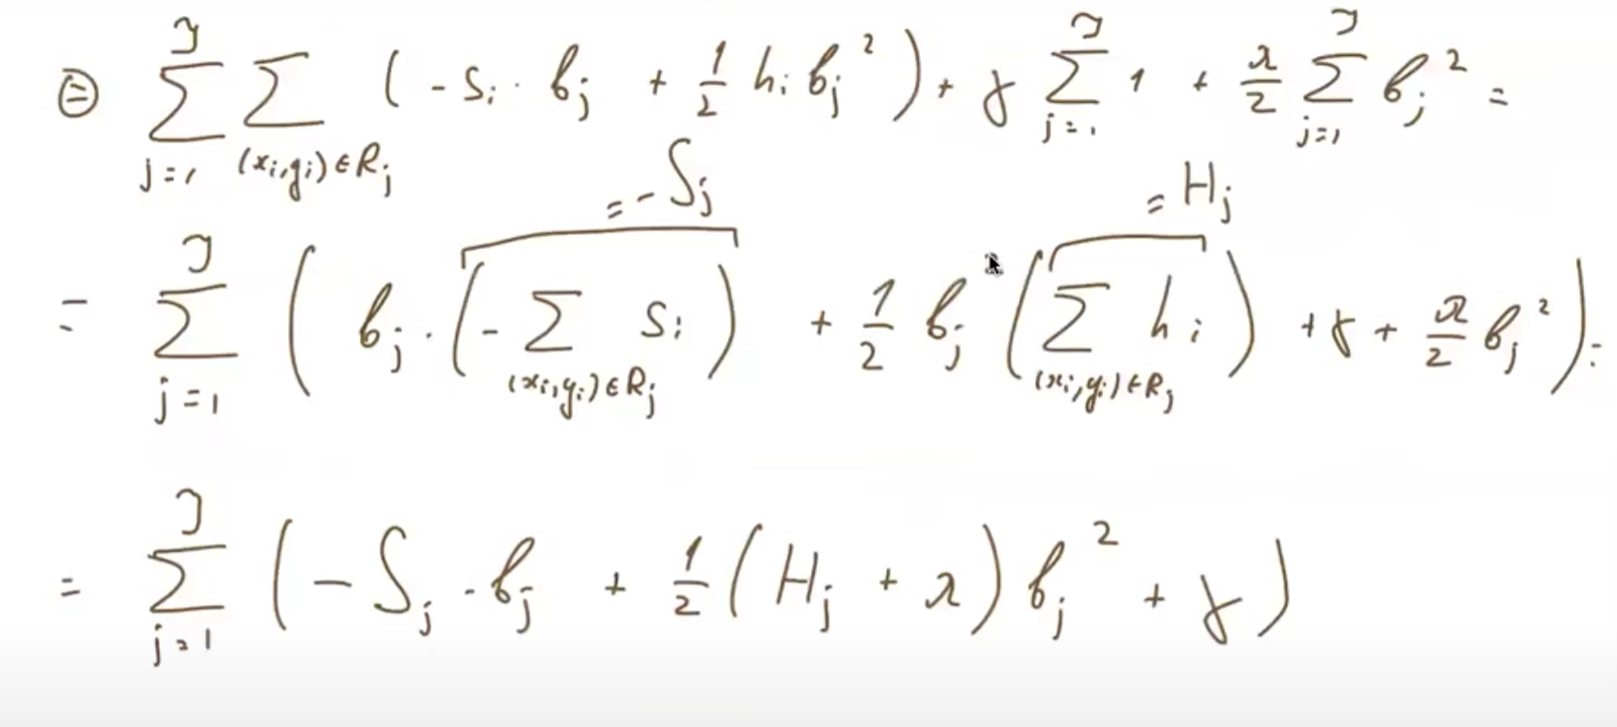 ⊜ \sum_{j=1}^{J} \sum_{(x_i, y_i) \in R_j} ( - s_i \cdot b_j + \frac{1}{2} h_i b_j^2 ) + γ \sum_{j=1}^{J} 1 + \frac{λ}{2} \sum_{j=1}^{J} b_j^2 =
= -S_j = H_j
= \sum_{j=1}^{J} ( b_j \cdot ( - \sum_{(x_i, y_i) \in R_j} s_i ) + \frac{1}{2} b_j^2 ( \sum_{(x_i, y_i) \in R_j} h_i ) + γ + \frac{λ}{2} b_j^2 ) =
= \sum_{j=1}^{J} ( - S_j \cdot b_j + \frac{1}{2} ( H_j + λ ) b_j^2 + γ )